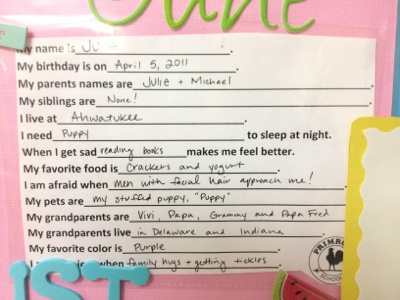 June
My name is June.
My birthday is on April 5, 2011.
My parents names are Julie + Michael.
My siblings are None!.
I live at Ahwatukee.
I need Puppy to sleep at night.
When I get sad reading books makes me feel better.
My favorite food is Crackers and yogurt.
I am afraid when men with facial hair approach me!.
My pets are my stuffed puppy, "Puppy".
My grandparents are Vivi, Papa, Grammy and Papa Fred
My grandparents live in Delaware and Indiana.
My favorite color is Purple.
when family hugs + getting tickles.
PRIMRO
SCHOOL
IST